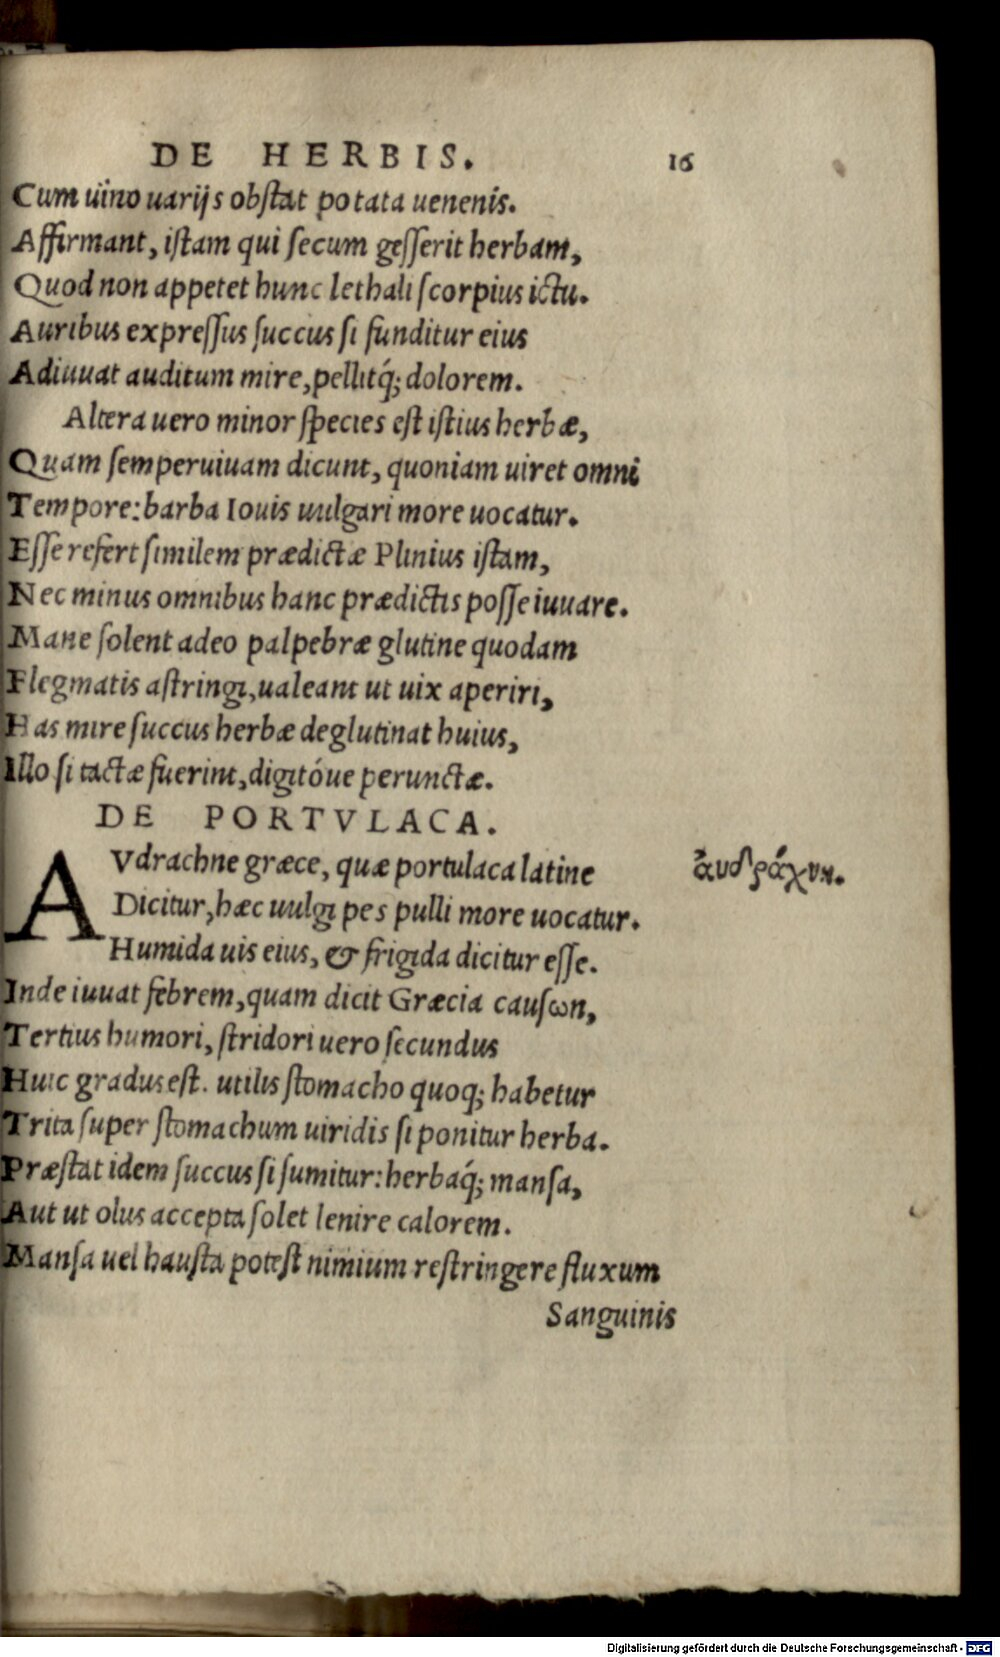 DE HERBIS. 16
Cum uino uarijs obstat potata uenenis.
Affirmant, istam qui secum gesserit herbam,
Quod non appetet hunc lethali scorpius ictu.
Auribus expressus succus si funditur eius
Adiuuat auditum mire, pellitq́; dolorem.
Altera uero minor species est istius herbæ,
Quam semperuiuam dicunt, quoniam uiret omni
Tempore: barba Iouis uulgari more uocatur.
Esse refert similem prædictæ Plinius istam,
Nec minus omnibus hanc prædictis posse iuuare.
Mane solent adeo palpebræ glutine quodam
Flegmatis astringi, ualeant ut uix aperiri,
Has mire succus herbæ deglutinat huius,
Illo si tactæ fuerint, digitóue perunctæ.
DE PORTVLACA.
AVdrachne græce, quæ portulaca latine
ἀυδράχνη.
Dicitur, hæc uulgi pes pulli more uocatur.
Humida uis eius, & frigida dicitur esse.
Inde iuuat febrem, quam dicit Græcia causωn,
Tertius humori, stridori uero secundus
Huic gradus est. utilis stomacho quoq; habetur
Trita super stomachum uiridis si ponitur herba.
Præstat idem succus si sumitur: herbaq́; mansa,
Aut ut olus accepta solet lenire calorem.
Mansa uel hausta potest nimium restringere fluxum
Sanguinis
Digitalisierung gefördert durch die Deutsche Forschungsgemeinschaft - DFG